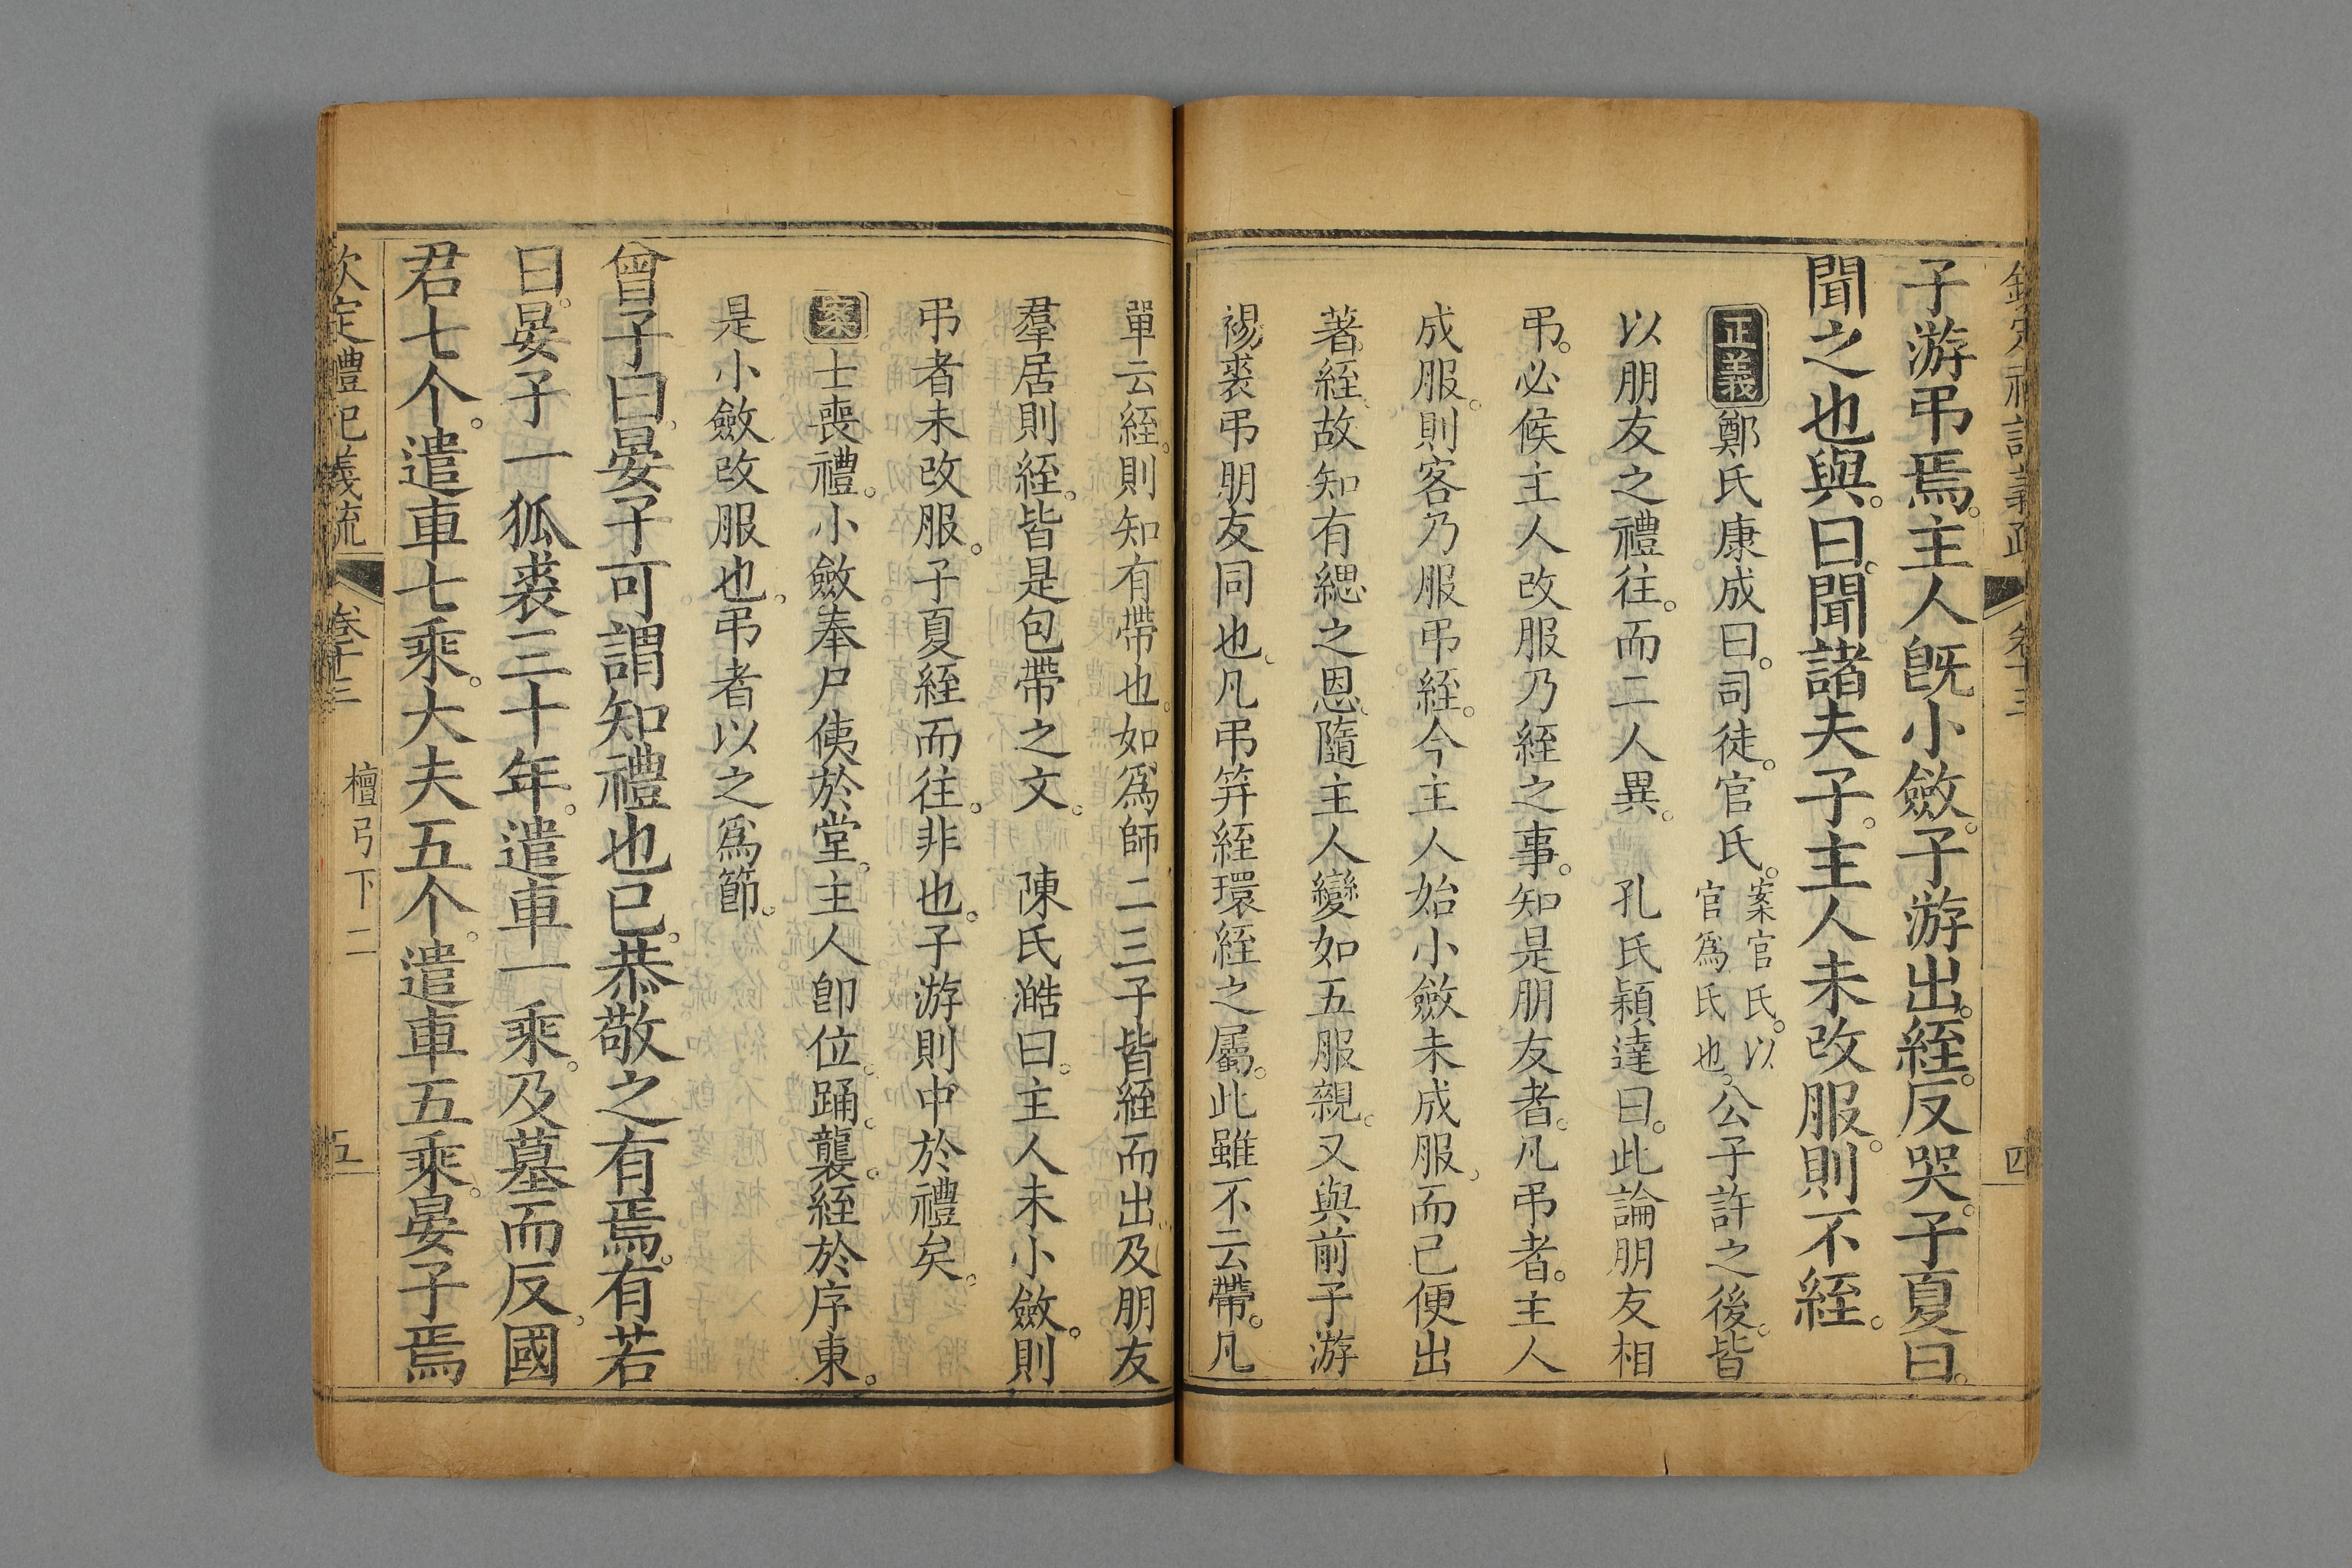 欽定禮記義疏 卷十三 四
子游弔焉。主人既小斂。子游出。絰。反哭。子夏曰。
聞之也與。曰。聞諸夫子。主人未改服。則不絰。
正義 鄭氏康成曰。司徒。官氏。案官氏。以官爲氏也。公子許之後。皆
以朋友之禮往。而二人異。 孔氏穎達曰。此論朋友相
弔。必候主人改服乃絰之事。知是朋友者。凡弔者。主人
成服。則客乃服弔絰。今主人始小斂未成服。而已便出
著絰。故知有緦之恩。隨主人變如五服親。又與前子游
裼裘弔朋友同也。凡弔筓絰環絰之屬。此雖不云帶。凡
單云絰。則知有帶也。如爲師二三子皆絰而出。及朋友
羣居則絰。皆是包帶之文。 陳氏澔曰。主人未小斂。則
弔者未改服。子夏絰而往。非也。子游則中於禮矣。
案 士喪禮。小斂奉尸侇於堂。主人卽位踊。襲。絰於序東。
是小斂改服也。弔者以之爲節。
曾子曰。晏子可謂知禮也已。恭敬之有焉。有若
曰。晏子一狐裘三十年。遣車一乘。及墓而反。國
君七个。遣車七乘。大夫五个。遣車五乘。晏子焉
欽定禮記義疏 卷十三 檀弓下二 五